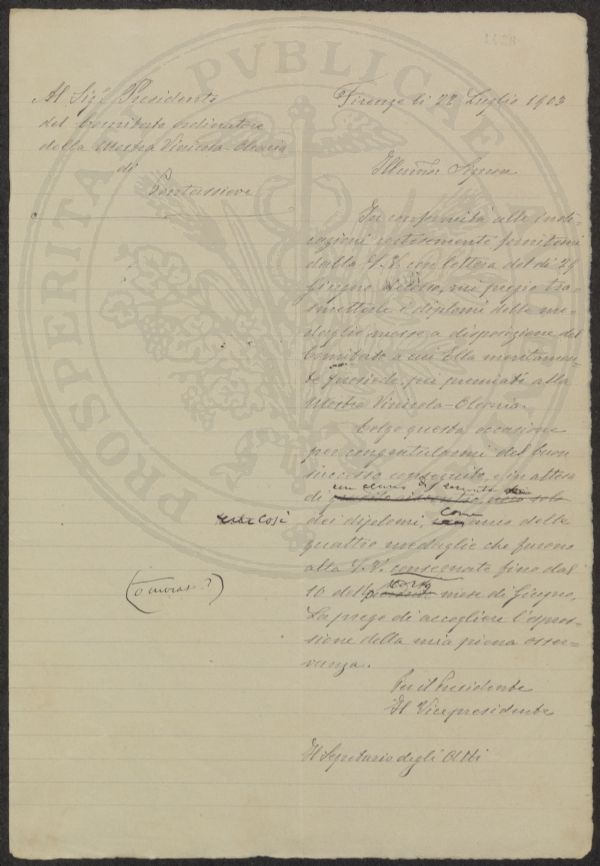 Al Sigr Presidente
del Comitato ordinatore
della Mostra Vinicola-Olearia
di
Pontassieve
Firenze li 22 Luglio 1903
Illmo Signore
In conformità alle indi-
cazioni cortesemente fornitemi
dalla S.V. con lettera del dì 29
Giugno decorso, mi pregio tra-
smetterle i diplomi delle me-
daglie messe a disposizione del
Comitato a cui Ella meritamen-
te presiede, pei premiati alla
Mostra Vinicola-Olearia.
Colgo questa occasione
per congratularmi del buon
successo conseguito, e in attesa
di un cenno di ricevuta
così
dei diplomi, come delle
quattro medaglie che furono
alla S.V. consegnate fino dal
10 del mese di Giugno,
La prego di accogliere l'espres-
sione della mia piena osser-
vanza.
Per il Presidente
Il Vicepresidente
Il Segretario degli Atti
PROSPERITATI PUBLICAE